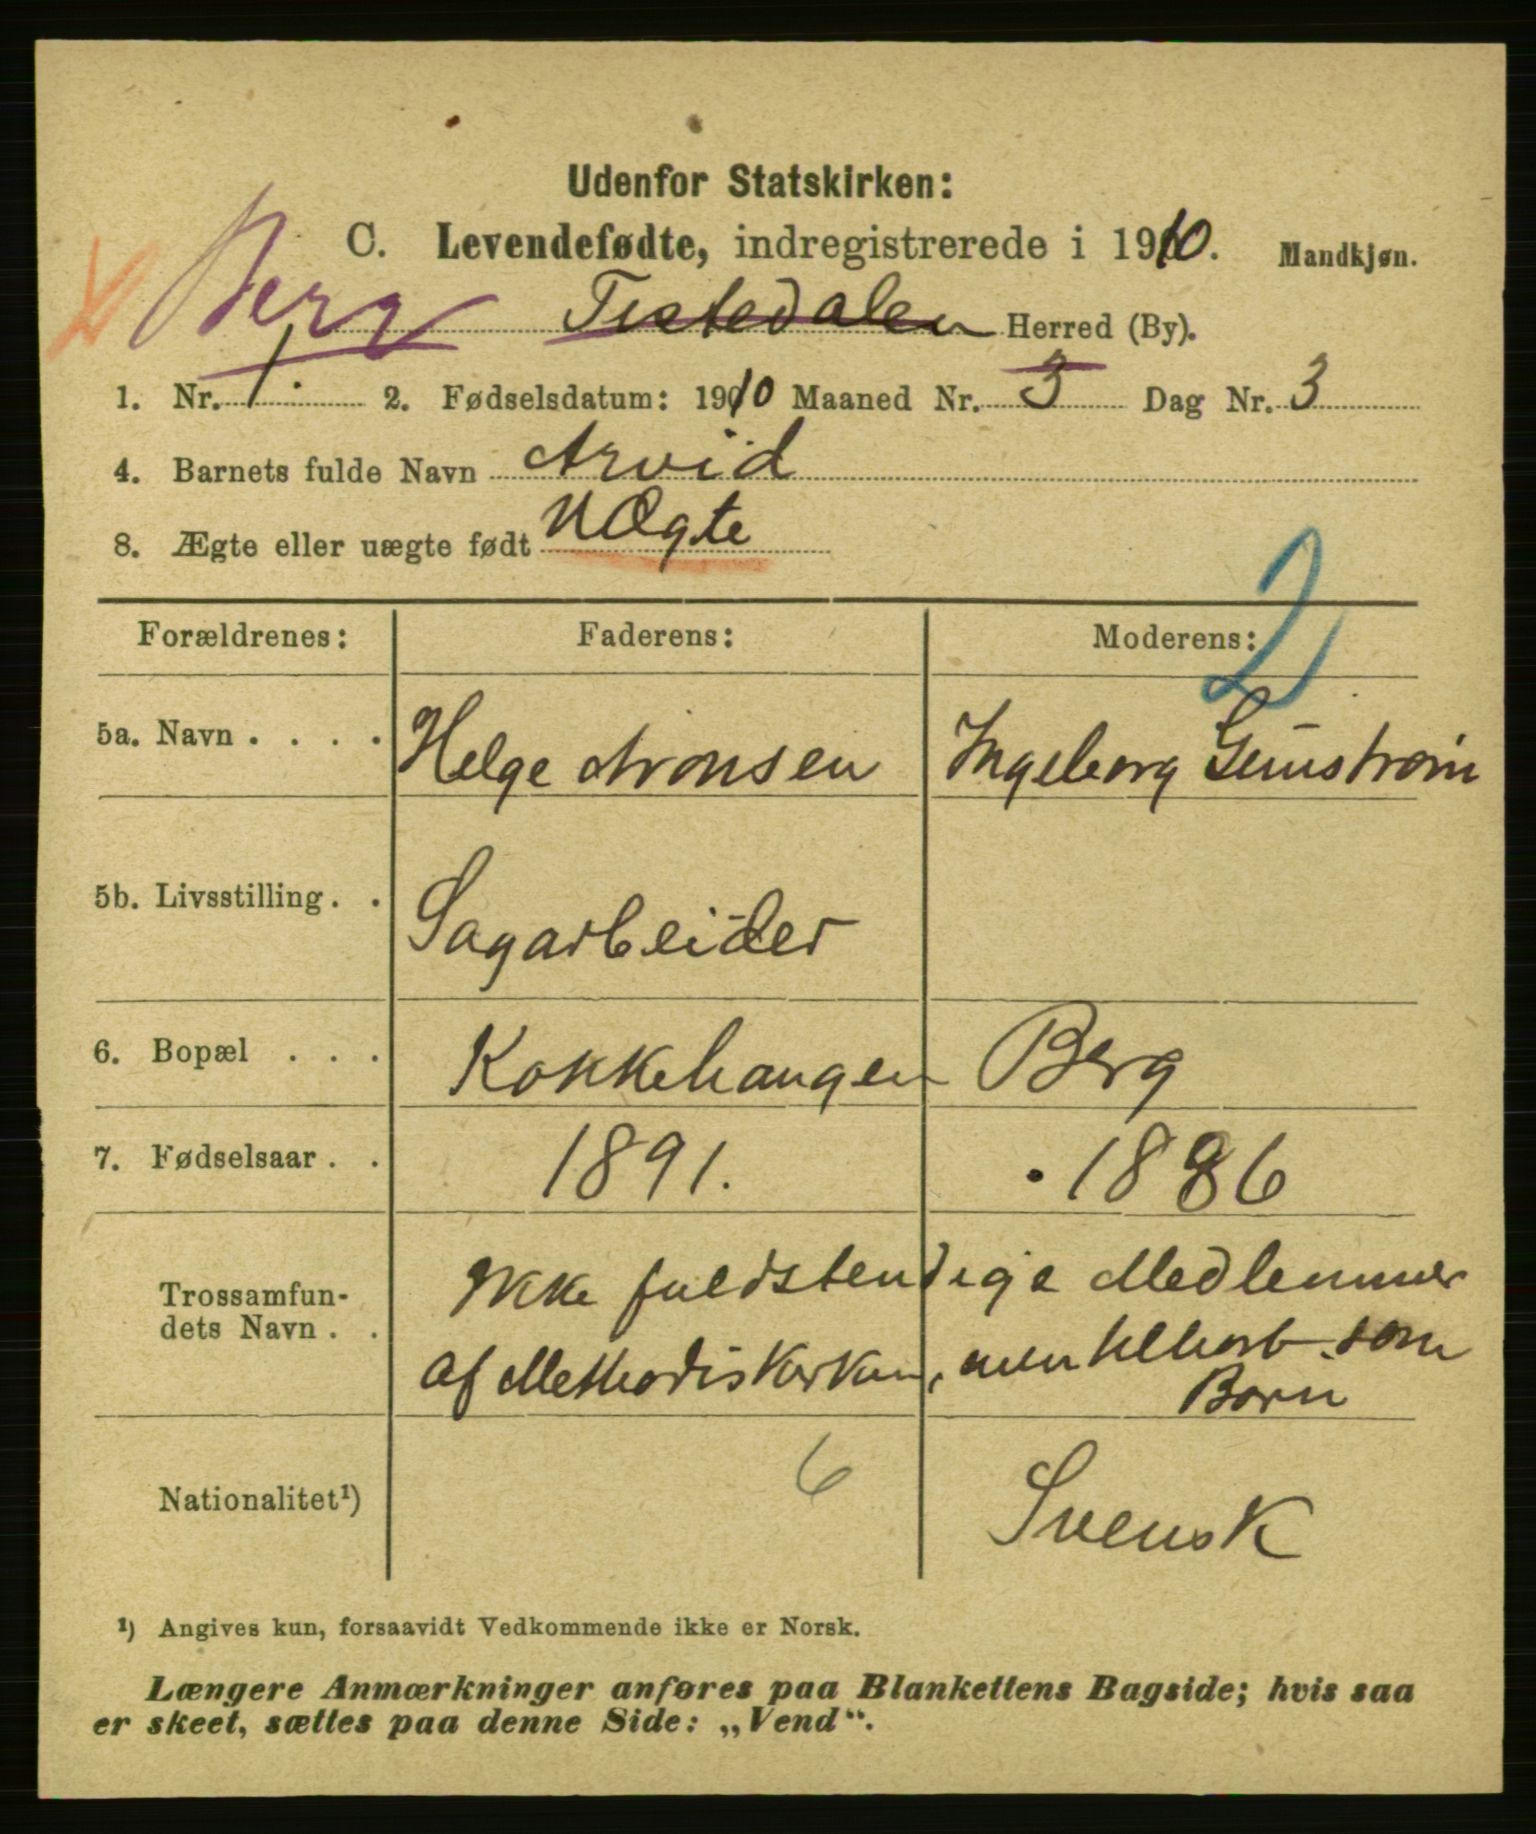 Udenfor Statskirken:
C. Levendefødte, indregistrerede i 1910. Mandkjøn.
Berg Tistedalen Herred (By).
1. Nr. 1. 2. Fødselsdatum: 1910 Maaned Nr. 3 Dag Nr. 3
4. Barnets fulde Navn Arvid
8. Ægte eller uægte født uægte
2
Forældrenes: Faderens: Moderens:
5a. Navn . . . . Helge Aronsen Ingeborg
5b. Livsstilling . . Sagarbeider
6. Bopæl . . . Kokkehaugen Berg
7. Fødselsaar . . 1891. 1886
Trossamfun- Ikke fuldstendige Medlemmer
dets Navn . . af Methodiskirken, men tilhørt som
Børn
6
Nationalitet¹) Svensk
¹) Angives kun, forsaavidt Vedkommende ikke er Norsk.
Længere Anmærkninger anføres paa Blankettens Bagside; hvis saa
er skeet, sættes paa denne Side: „Vend“.